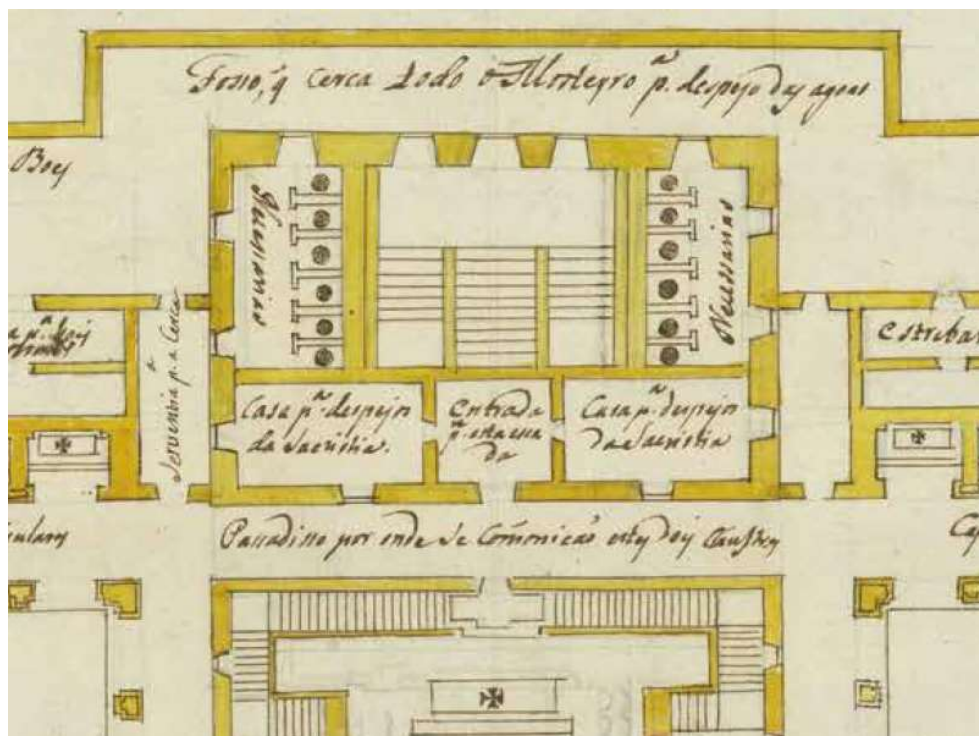 Fosso, q̃ cerca todo o Mosteyro p.ª despejo das agoas
Boes
Necessarias
Necessarias
Serventia p.ª a Cerca
Estreba
Casa p.ª despejos
da Sacristia.
Entrada
p.ª esta esca
da
Casa p.ª despejos
da Sacristia
Passadisso por onde se comonicaõ estes dois Claustros